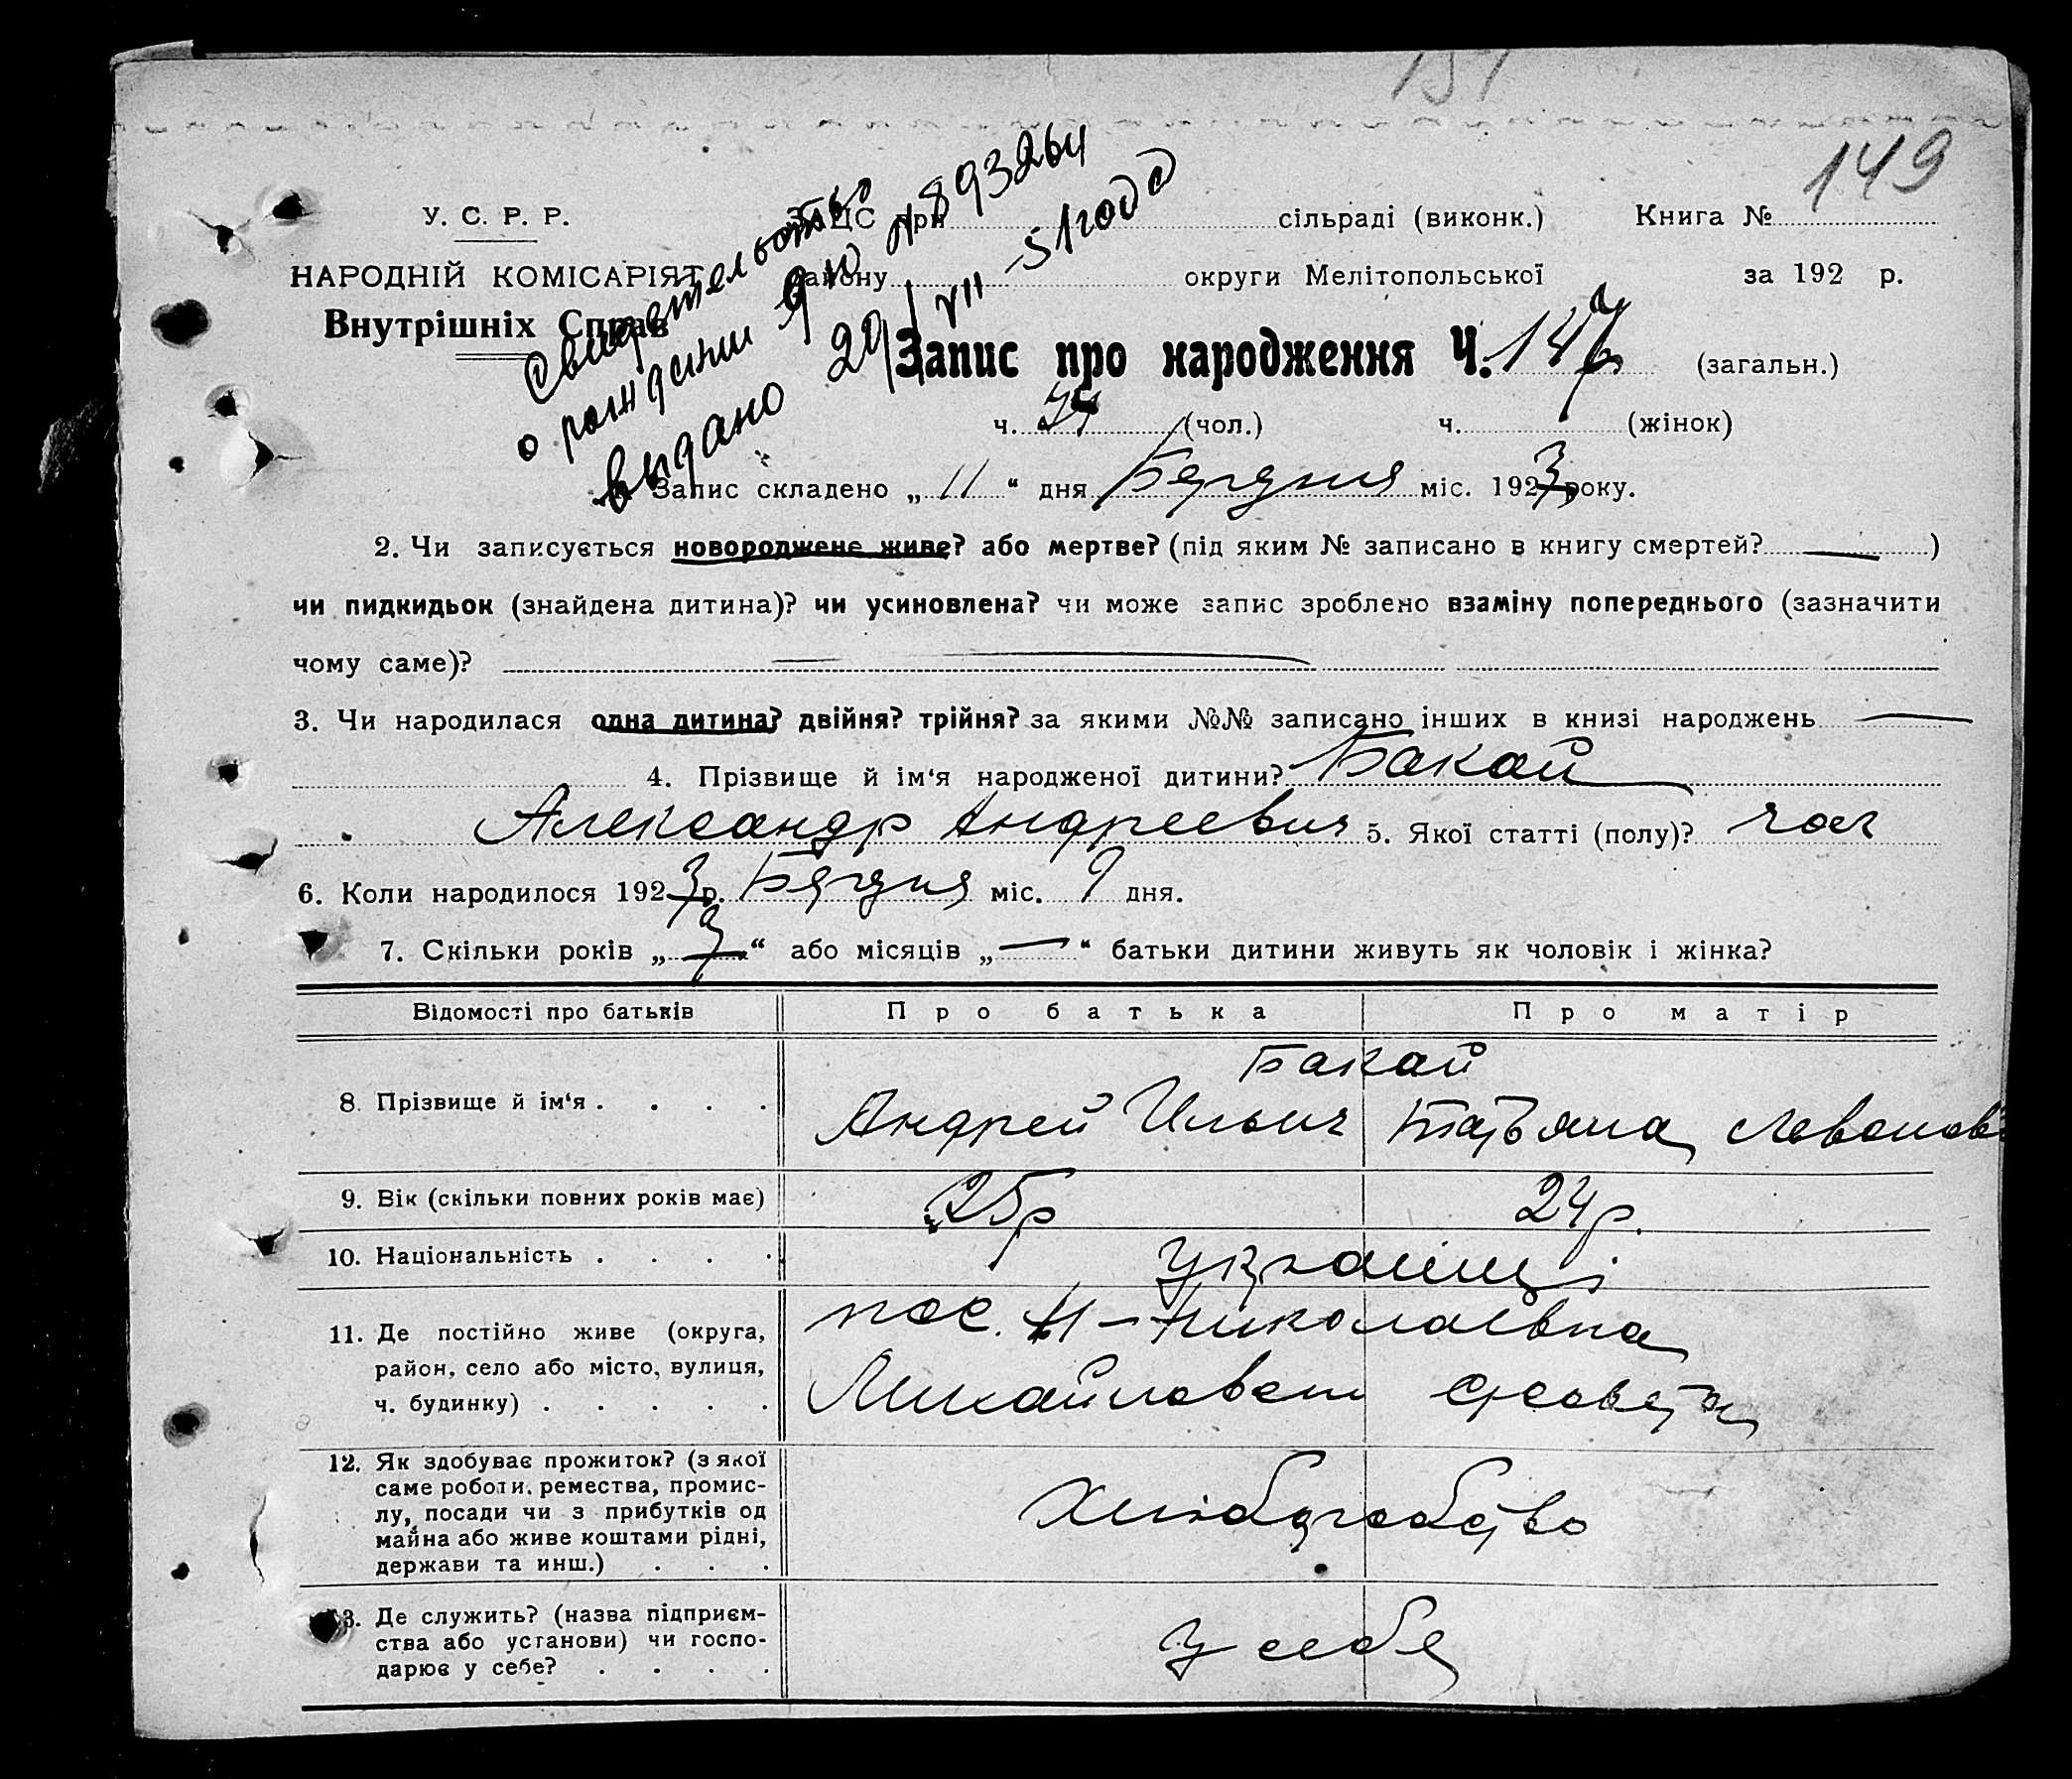 151
149
Свидетельство
о рождении ЯЮ № 893264
выдано 29/VII 51 года
У. С. Р. Р.
ЗАЦС при сільраді (виконк.) Книга №
НАРОДНІЙ КОМІСАРІЯТ району округи Мелітопольської за 192 р.
Внутрішніх Справ
Запис про народження Ч. 147 (загальн.)
ч. 74 (чол.) ч. (жінок)
Запис складено „ 11 “ дня міс. 1923 року.
2. Чи записується новороджене живе? або мертве? (під яким № записано в книгу смертей? — )
чи пидкидьок (знайдена дитина)? чи усиновлена? чи може запис зроблено взаміну попереднього (зазначити
чому саме)? —
3. Чи народилася одна дитина? двійня? трійня? за якими №№ записано інших в книзі народжень —
4. Прізвище й ім‘я народженої дитини? Бакай
Александр Андреевич 5. Якої статті (полу)? чол
6. Коли народилося 1923 р. міс. 9 дня.
7. Скільки років „ 3 “ або місяців „ — “ батьки дитини живуть як чоловік і жінка?
Відомості про батьків Про батька Про матір
Бакай
8. Прізвище й ім‘я . . . . Андрей Ильич Татьяна
9. Вік (скільки повних років має) 25р 24р.
10. Національність . . . . Українці
11. Де постійно живе (округа, район, село або місто, вулиця, ч. будинку) . . . . . пос. Н-Николаевка
Михайловской
12. Як здобуває прожиток? (з якої
саме роботи, ремества, промис-
лу, посади чи з прибутків од
майна або живе коштами рідні,
держави та инш.) . . . Хліборобство
13. Де служить? (назва підприєм-
ства або установи) чи госпо-
дарює у себе? . . . . У себе